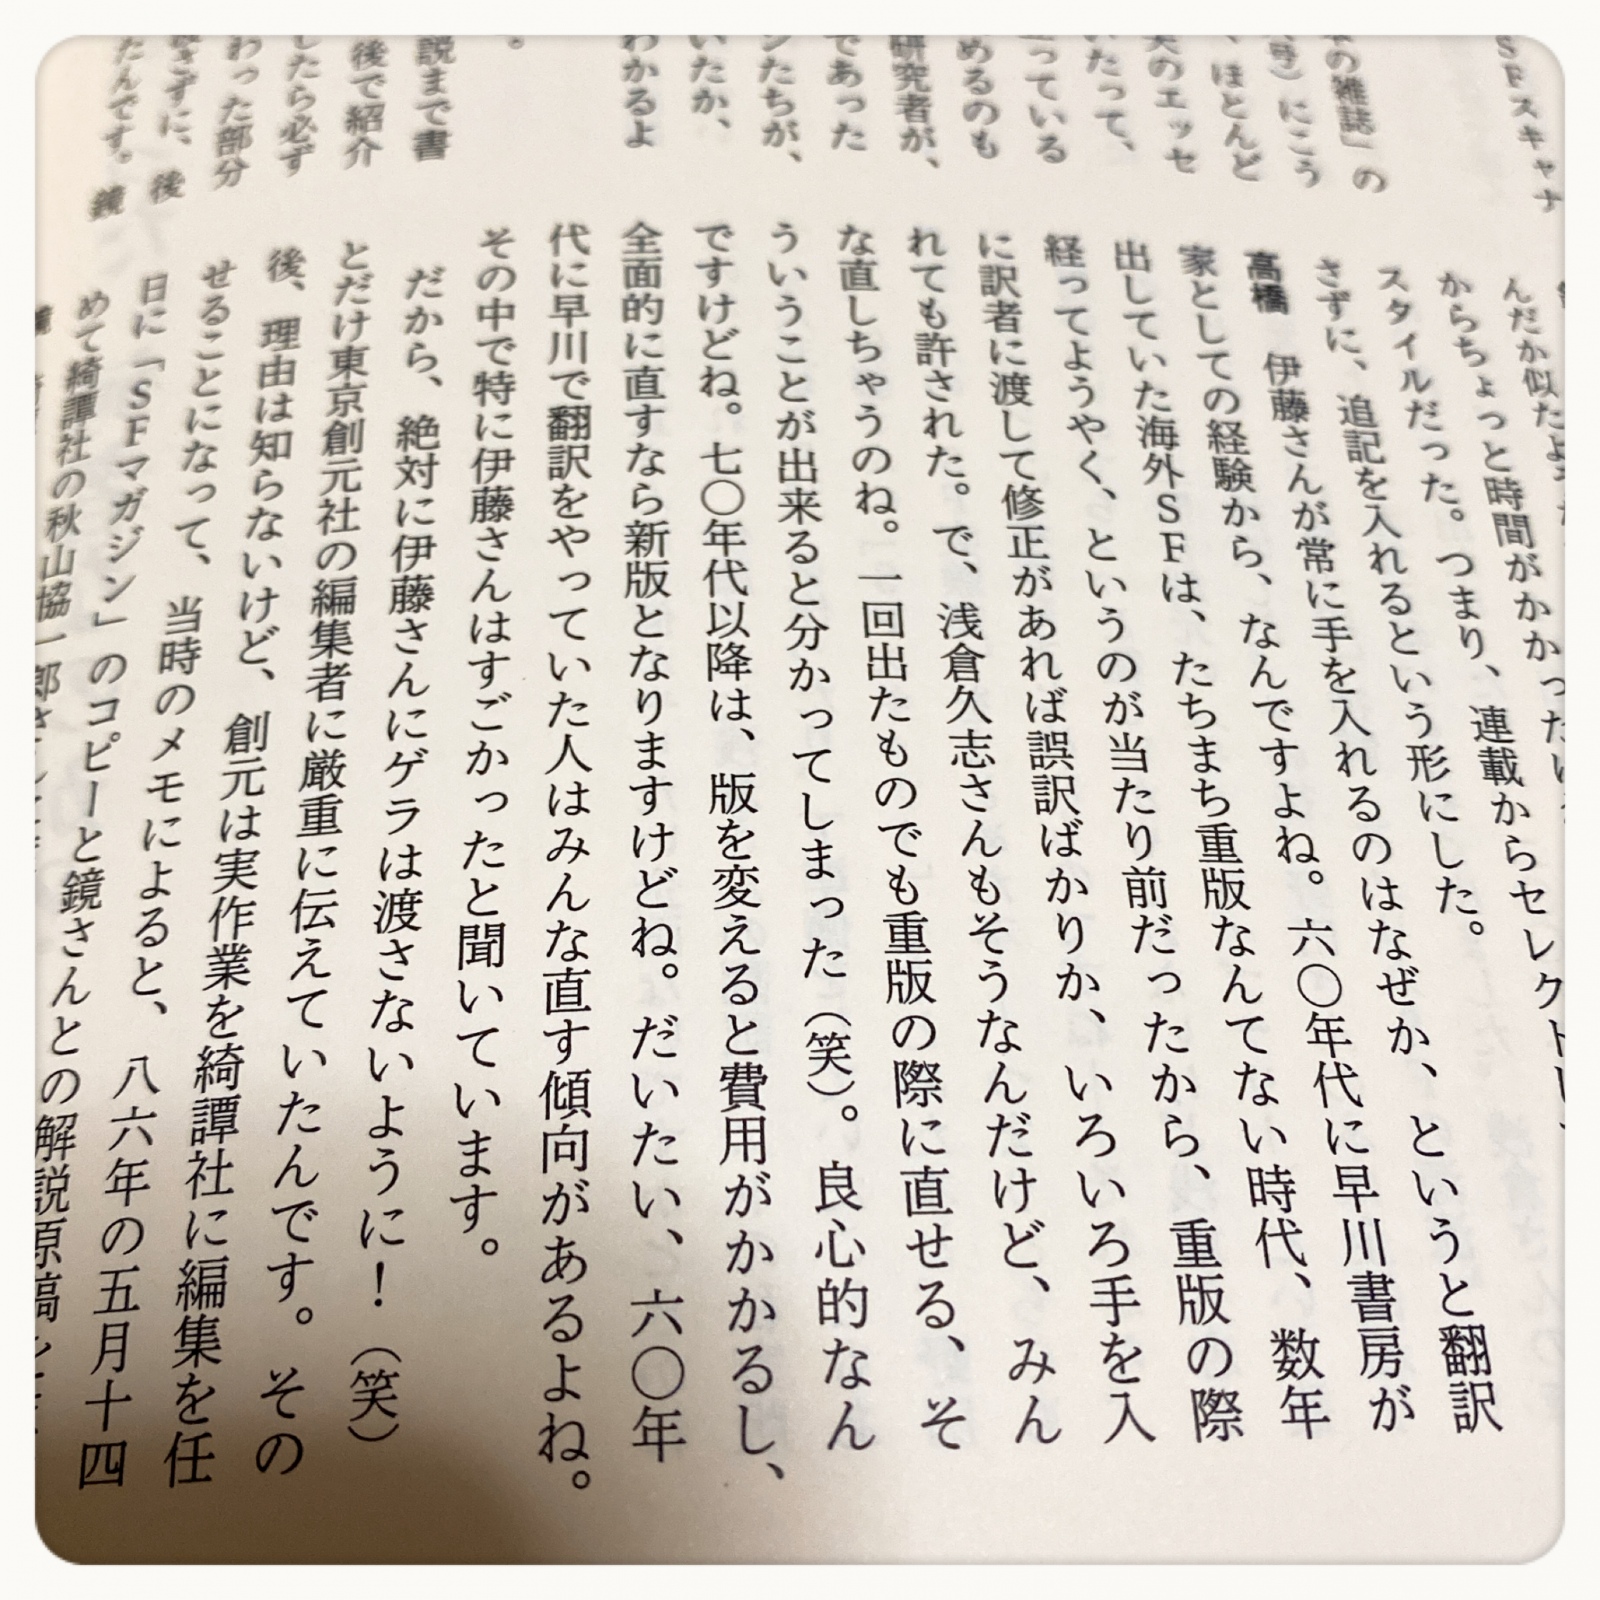 SFスキャナ
の雑誌」の
号）にこう
ほとんど
のエッセ
いたって、
っている
めるのも
研究者が、
であった
たちが、
いたか、
わかるよ
。
説まで書
後で紹介
したら必ず
わった部分
さずに、後
たんです。
鏡
んだか似たよ
からちょっと時間がかかった
スタイルだった。つまり、連載からセレクト
さずに、追記を入れるという形にした。
高橋　伊藤さんが常に手を入れるのはなぜか、というと翻訳
家としての経験から、なんですよね。六〇年代に早川書房が
出していた海外SFは、たちまち重版なんてない時代、数年
経ってようやく、というのが当たり前だったから、重版の際
に訳者に渡して修正があれば誤訳ばかりか、いろいろ手を入
れても許された。で、浅倉久志さんもそうなんだけど、みん
な直しちゃうのね。一回出たものでも重版の際に直せる、そ
ういうことが出来ると分かってしまった（笑）。良心的なん
ですけどね。七〇年代以降は、版を変えると費用がかかるし、
全面的に直すなら新版となりますけどね。だいたい、六〇年
代に早川で翻訳をやっていた人はみんな直す傾向があるよね。
その中で特に伊藤さんはすごかったと聞いています。
だから、絶対に伊藤さんにゲラは渡さないように！（笑）
とだけ東京創元社の編集者に厳重に伝えていたんです。その
後、理由は知らないけど、創元は実作業を綺譚社に編集を任
せることになって、当時のメモによると、八六年の五月十四
日に「SFマガジン」のコピーと鏡さんとの解説原稿
めて綺譚社の秋山協一郎さん